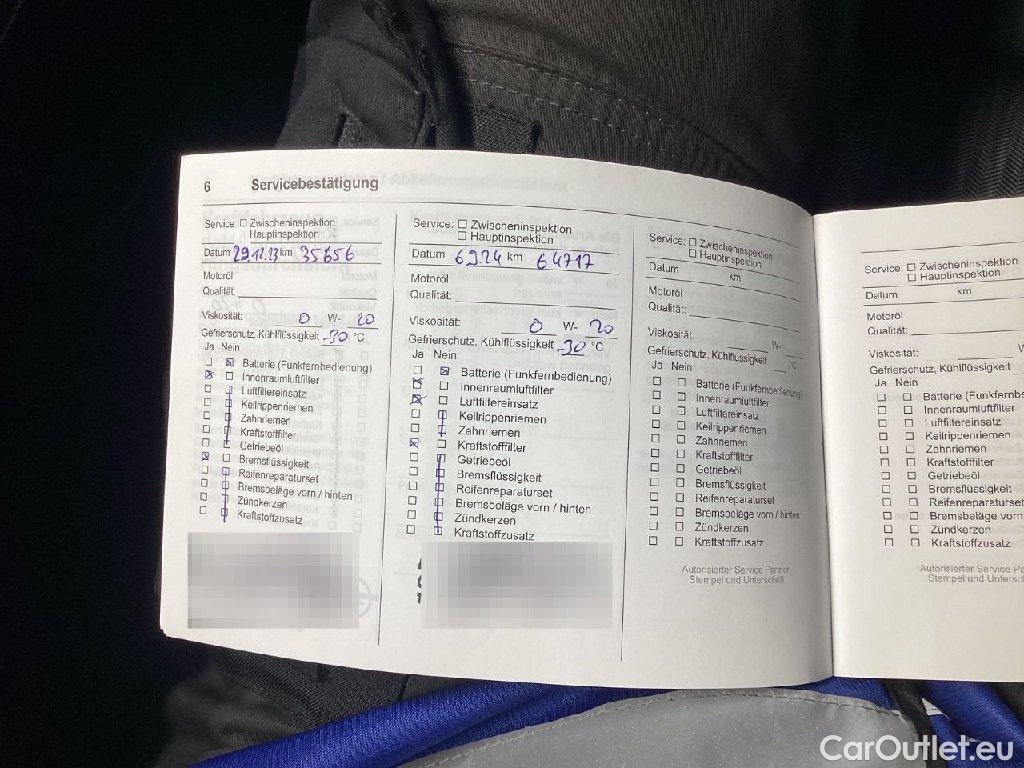 6 Servicebestätigung
Service: Zwischeninspektion
Hauptinspektion
Datum 29.12.23 km 35656
Motoröl
Qualität:
Viskosität: 0 W- 20
Gefrierschutz, Kühlflüssigkeit -30 °C
Ja Nein
Batterie (Funkfernbedienung)
Innenraumluftfilter
Luftfiltereinsatz
Keilrippenriemen
Zahnriemen
Kraftstofffilter
Getriebeöl
Bremsflüssigkeit
Reifenreparaturset
Bremsbeläge vorn / hinten
Zündkerzen
Kraftstoffzusatz
Service: Zwischeninspektion
Hauptinspektion
Datum 6.9.24 km 64717
Motoröl
Qualität:
Viskosität: 0 W- 20
Gefrierschutz, Kühlflüssigkeit -30 °C
Ja Nein
Batterie (Funkfernbedienung)
Innenraumluftfilter
Luftfiltereinsatz
Keilrippenriemen
Zahnriemen
Kraftstofffilter
Getriebeöl
Bremsflüssigkeit
Reifenreparaturset
Bremsbeläge vorn / hinten
Zündkerzen
Kraftstoffzusatz
Service: Zwischeninspektion
Hauptinspektion
Datum km
Motoröl
Qualität:
Viskosität: W-
Gefrierschutz, Kühlflüssigkeit °C
Ja Nein
Batterie (Funkfernbedienung)
Innenraumluftfilter
Luftfiltereinsatz
Keilrippenriemen
Zahnriemen
Kraftstofffilter
Getriebeöl
Bremsflüssigkeit
Reifenreparaturset
Bremsbeläge vorn / hinten
Zündkerzen
Kraftstoffzusatz
Autorisierter Service Partner
Stempel und Unterschrift
Service: Zwischeninspektion
Hauptinspektion
Datum km
Motoröl
Qualität:
Viskosität: W-
Gefrierschutz, Kühlflüssigkeit
Ja Nein
Batterie (Funkfernb
Innenraumluftfilter
Luftfiltereinsatz
Keilrippenriemen
Zahnriemen
Kraftstofffilter
Getriebeöl
Bremsflüssigkeit
Reifenreparaturset
Bremsbeläge vorn
Zündkerzen
Kraftstoffzusatz
Autorisierter Service Par
Stempel und Unterschr
CarOutlet.eu